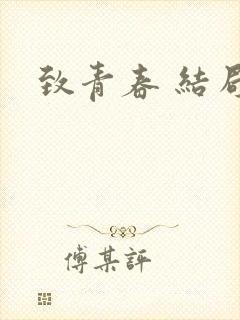 致青春 結局
傅某評